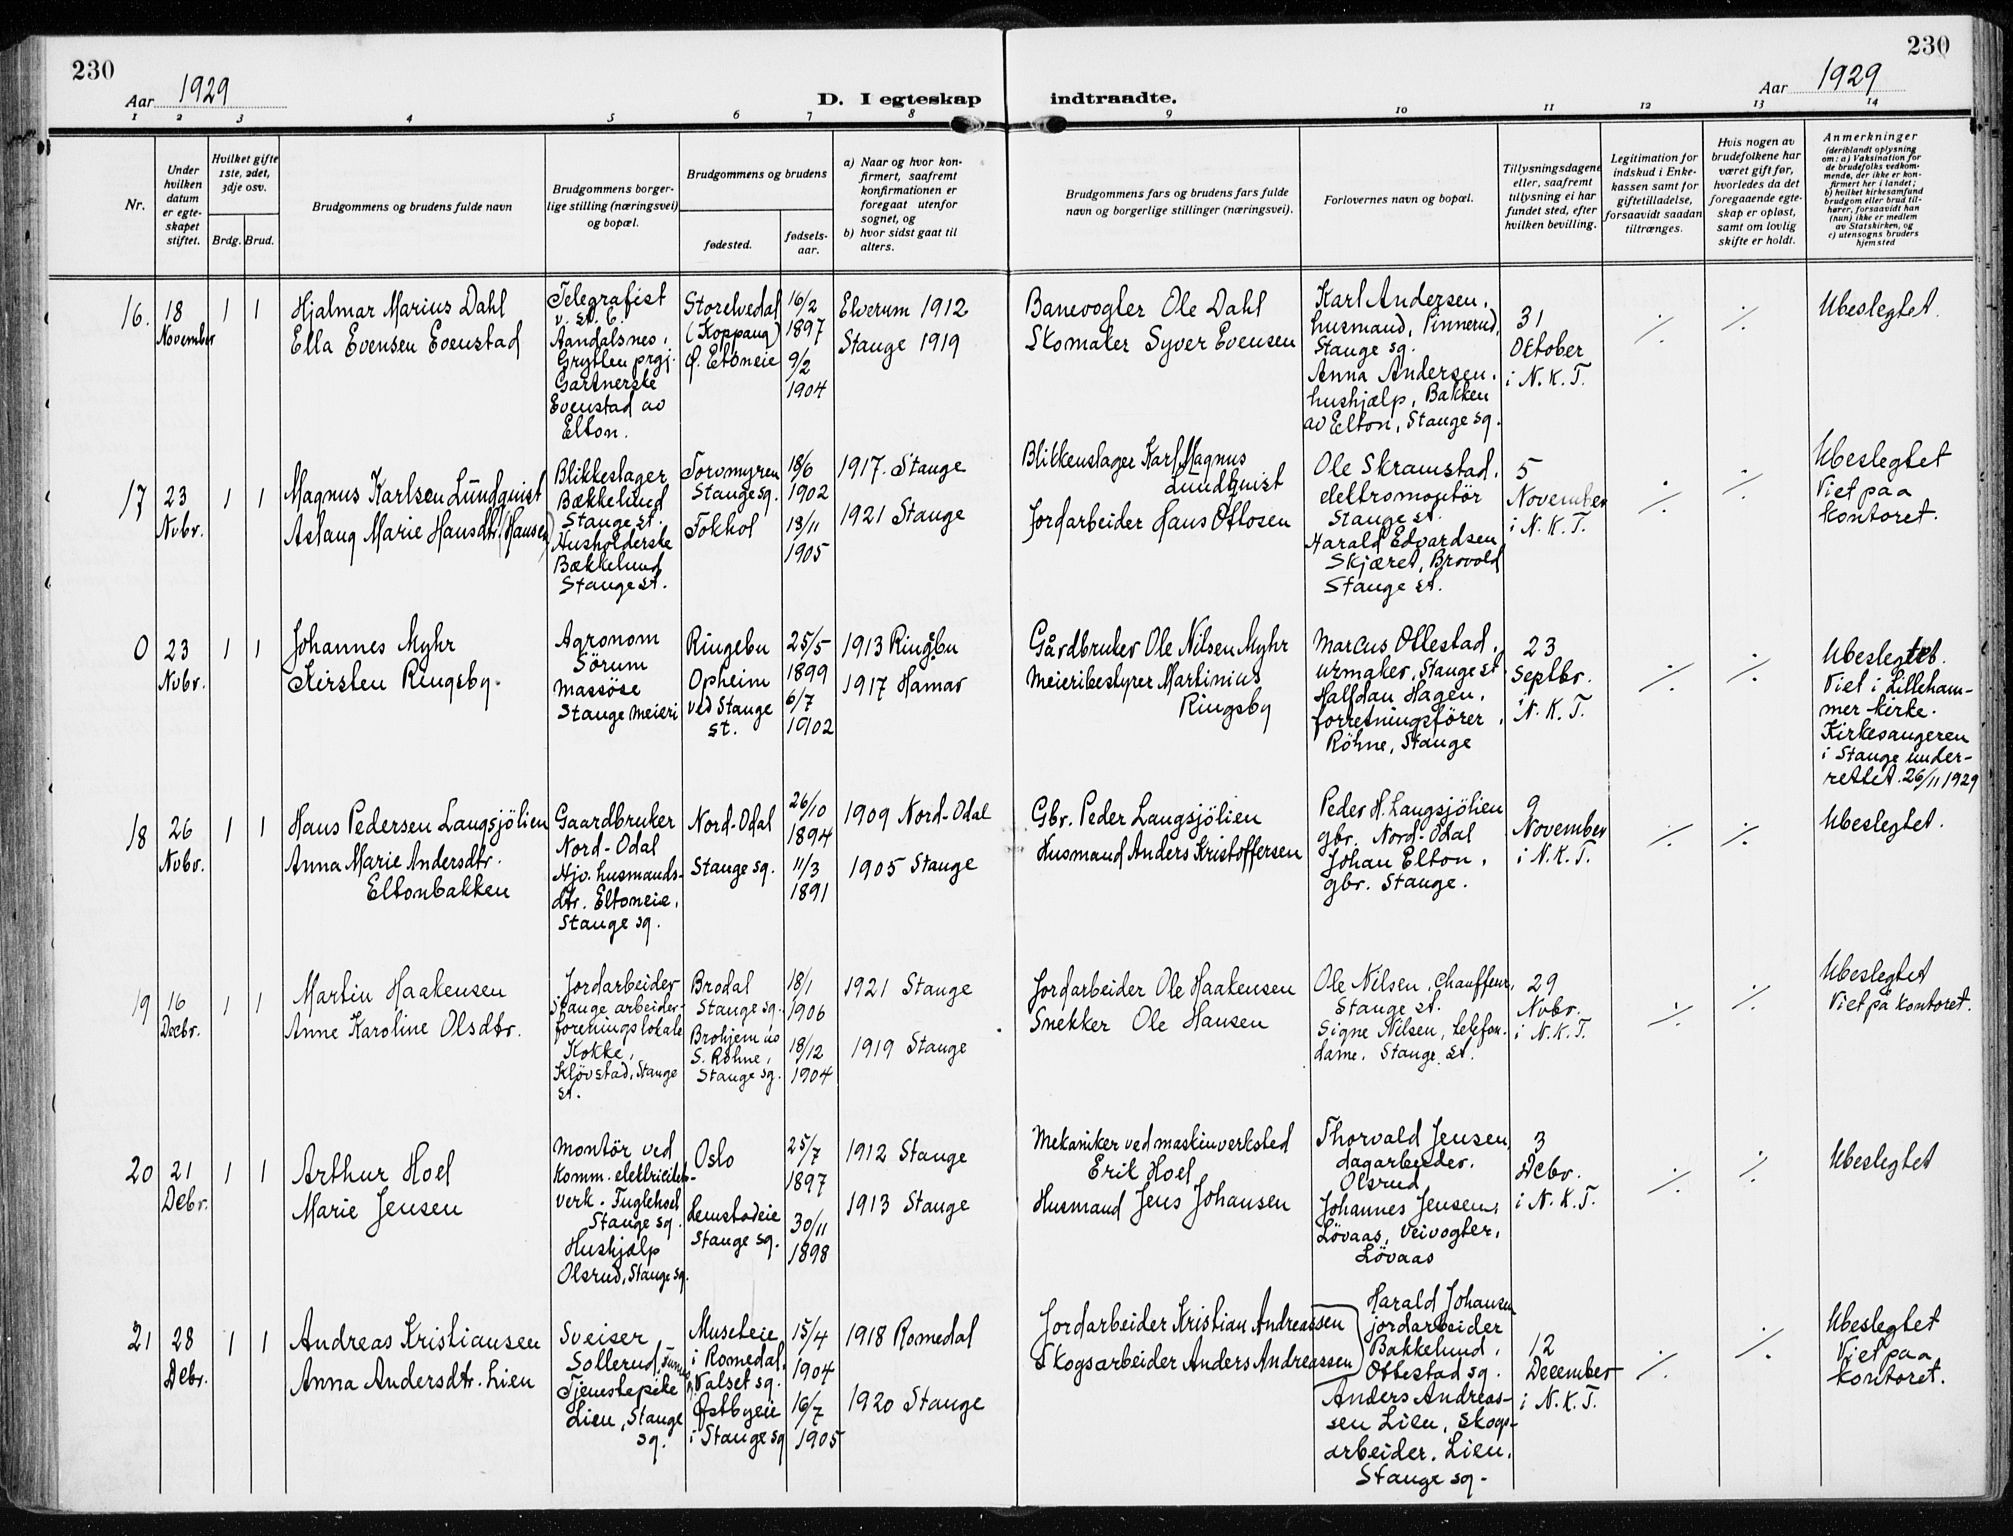 230
230
Aar 1929
D. I egteskap indtraadte.
Aar 1929
1 2 3 4 5 6 7 8 9 10 11 12 13 14
Nr.
Under
hvilken
datum
er egte-
skapet
stiftet.
Hvilket gifte
1ste, 2det,
3dje osv.
Brdg. Brud.
Brudgommens og brudens fulde navn
Brudgommens borger-
lige stilling (næringsvei)
og bopæl.
Brudgommens og brudens
fødested.
fødsels-
aar.
a) Naar og hvor kon-
firmert, saafremt
konfirmationen er
foregaat utenfor
sognet, og
b) hvor sidst gaat til
alters.
Brudgommens fars og brudens fars fulde
navn og borgerlige stillinger (næringsvei).
Forlovernes navn og bopæl.
Tillysningsdagene
eller, saafremt
tillysning ei har
fundet sted, efter
hvilken bevilling.
Legitimation for
indskud i Enke-
kassen samt for
giftetilladelse,
forsaavidt saadan
tiltrænges.
Hvis nogen av
brudefolkene har
været gift før,
hvorledes da det
foregaaende egte-
skap er opløst,
samt om lovlig
skifte er holdt.
Anmerkninger
(deriblandt oplysning
om: a) Vaksination for
de brudefolks vedkom-
mende, der ikke er kon-
firmert her i landet;
b) hvilket kirkesamfund
brudgom eller brud til-
hører, forsaavidt han
(hun) ikke er medlem
av Statskirken, og
c) utensogns bruders
hjemsted
16.
18
November
1 1
Hjalmar Marius Dahl
Ella Evensen Evenstad
Telegrafist
v. st. E.
Aandalsnes,
Grytten prgj.
Gartnerske
Evenstad av
Elton.
Storelvedal
(Koppang)
Ø. Eltoneie
16/2
1897
9/2
1904
Elverum 1912
Stange 1919
Banevogter Ole Dahl
Skomaker Syver Evensen
Karl Andersen,
husmand, Pinnerud,
Stange sg.
Anna Andersen,
hushjælp, Bakken
av Elton, Stange sg.
31
Oktober
i N.K.T.
./.
./.
Ubeslegtet.
17
23
Nvbr.
1 1
Magnus Karlsen Lundquist
Aslaug Marie Hansdtr. (Hansen)
Blikkeslager
Bækkelund
Stange st.
Husholderske
Bækkelund
Stange st.
Torvmyren
Stange sg.
Tokhol
18/6
1902
18/11
1905
1917. Stange
1921 Stange
Blikkenslager Karl Magnus
Lundquist
Jordarbeider Hans Ottosen
Ole Skramstad,
elektromontör
Stange st.
Harald Edvardsen
Skjæret, Brovold
Stange st.
5
November
i N.K.T.
./.
./.
Ubeslegtet
Viet paa
kontoret.
0
23
Nvbr.
1 1
Johannes Myhr
Kirsten Ringsby.
Agronom
Sörum
Massöse
Stange meieri
Ringebu
Opheim
ved Stange
st.
25/5
1899
6/7
1902
1913 Ringebu
1917 Hamar
Gårdbruker Ole Nilsen Myhr
Meieribestyrer Martinius
Ringsby
Marcus Ottestad,
urmaker, Stange st.
Halfdan Hagen,
forretningsförer,
Röhne, Stange
23
Septbr.
i N.K.T.
./.
./.
Ubeslegtet.
Viet i Lilleham-
mer kirke.
Kirkesangeren
i Stange under-
rettet. 26/11 1929
18
26
Nvbr.
1 1
Hans Pedersen Langsjölien
Anna Marie Andersdtr.
Eltonbakken
Gaardbruker
Nord-Odal
Njv. husmands-
dtr. Eltoneie,
Stange sg.
Nord-Odal
Stange sg.
26/10
1894
11/3
1891
1909 Nord-Odal
1905 Stange
Gbr. Peder Langsjölien
Husmand Anders Kristoffersen
Peder H. Langsjölien
gbr. Nord-Odal
Johan Elton,
gbr. Stange.
9
November
i N.K.T.
./.
./.
Ubeslegtet.
19
16
Decbr.
1 1
Martin Haakensen
Anne Karoline Olsdtr.
Jordarbeider
Stange arbeider-
foreningslokale
Kokke,
Klövstad, Stange
st.
Brodal
Stange sg.
Brohjem av
S. Röhne,
Stange sg.
18/1
1906
18/12
1904
1921 Stange
1919 Stange
Jordarbeider Ole Haakensen
Snekker Ole Hansen
Ole Nilsen, Chauffeur,
Stange st.
Signe Nilsen, telefon-
dame. Stange st.
29
Nvbr.
i N.K.T.
./.
./.
Ubeslegtet
Viet på kontoret.
20
21
Debr.
1 1
Arthur Hoel
Marie Jensen
Montör ved
komm. elektricitets-
verk. Fuglehsel
Stange sg.
Hushjælp
Olsrud, Stange sg.
Oslo
Lemstadeie
Stange sg.
25/7
1897
30/11
1898
1912 Stange
1913 Stange
Mekaniker ved maskinverksted
Erik Hoel
Husmand Jens Johansen
Thorvald Jensen,
dagarbeider.
Olsrud
Johannes Jensen,
Lövaas, veivogter,
Lövaas
3
Debr.
i N.K.T.
./.
./.
Ubeslegtet
21
28
Debr.
1 1
Andreas Kristiansen
Anna Andersdtr. Lien
Sveiser,
Sollerud,
Tjenestepike
Lien, Stange
sg.
Museteie
i Romedal,
Valset sg.
Østbyeie
i Stange sg
15/4
1904
16/7
1905
1918 Romedal
1920 Stange
Jordarbeider Kristian Andreassen
Skogsarbeider Anders Andreassen
Harald Johansen
jordarbeider
Bakkelund,
Ottestad sg.
Anders Andreas-
sen Lien, Skogs-
arbeider. Lien.
Stange sg.
12
December
i N.K.T.
./.
./.
Ubeslegtet
Viet paa
kontoret.